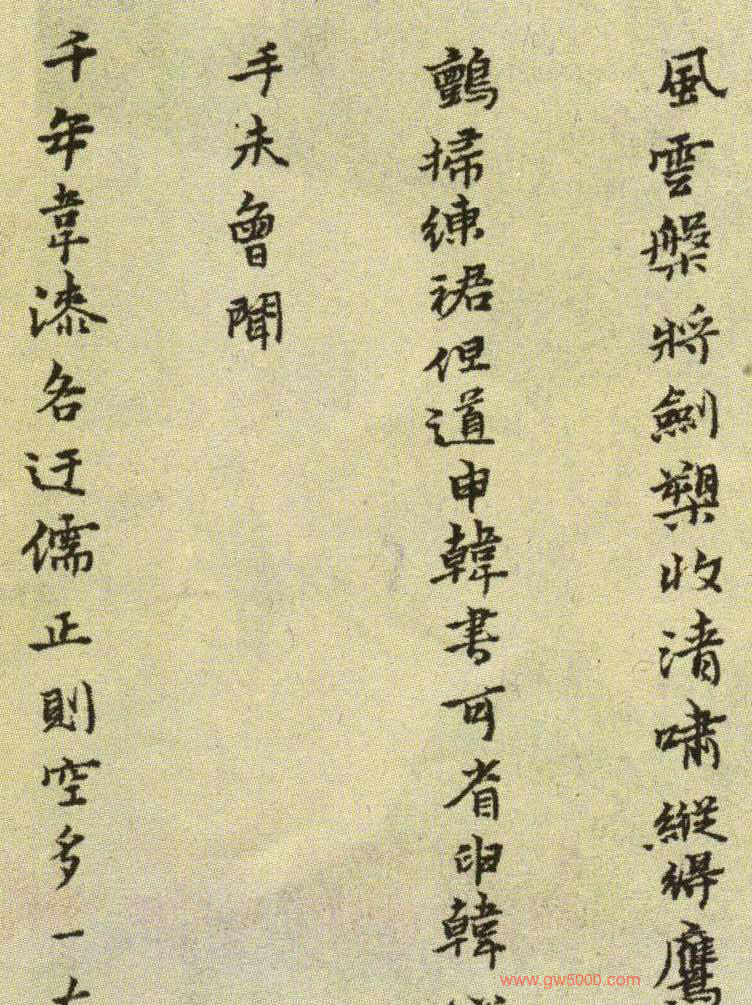 風雲槃將劍槊收清嘯縱得鷹
鸇掃練裙但道申韓書可省申韓
手未曾聞
千年韋漆各迂儒正則空多一
www.gw5000.com